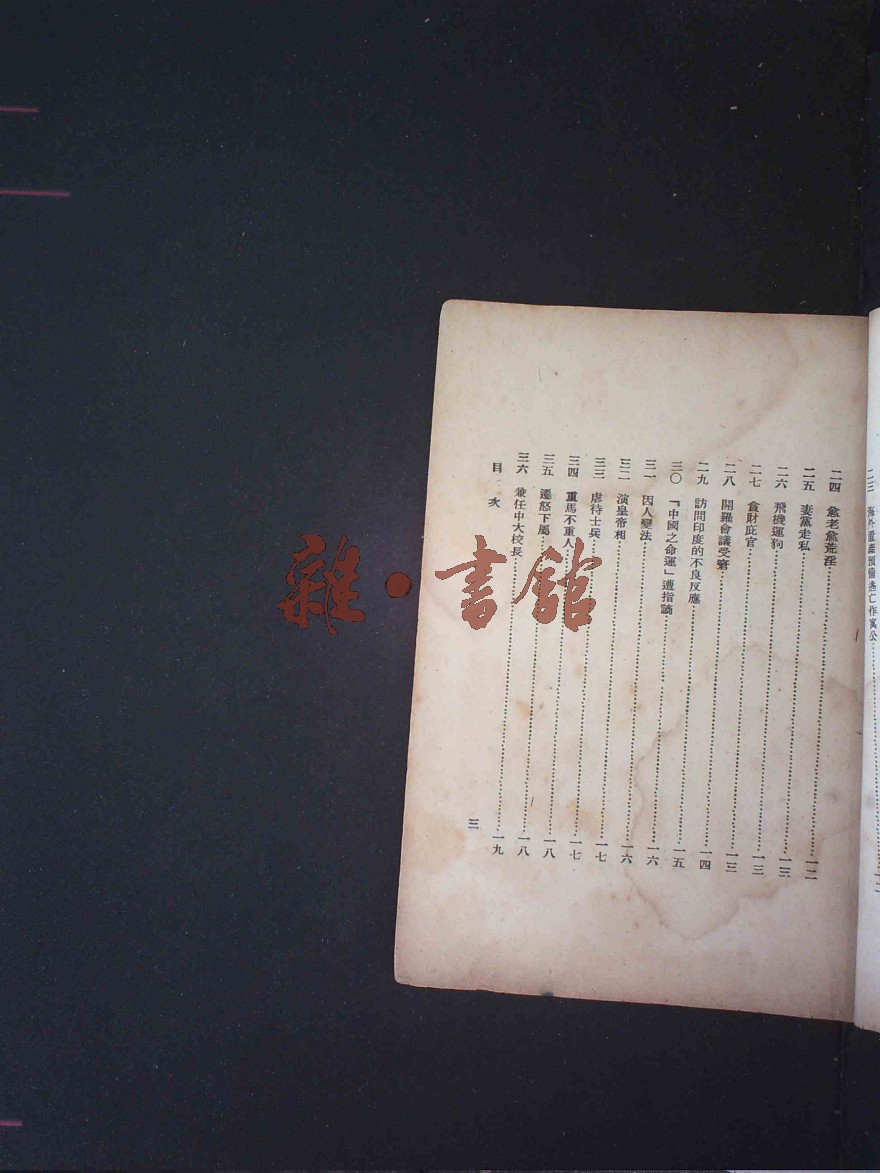 二三 海外置產預備逃亡作寓公
二四 愈老愈荒淫 一二
二五 妻黨走私 一三
二六 飛機運狗 一三
二七 貪財庇官 一三
二八 開羅會議受窘 一四
二九 訪問印度的不良反應 一五
三〇 「中國之命運」遭指謫 一六
三一 因人變法 一六
三二 演皇帝相 一七
三三 虐待士兵 一七
三四 重馬不重人 一八
三五 遷怒下屬 一八
三六 兼任中大校長 一九
目次
三
雜·書館